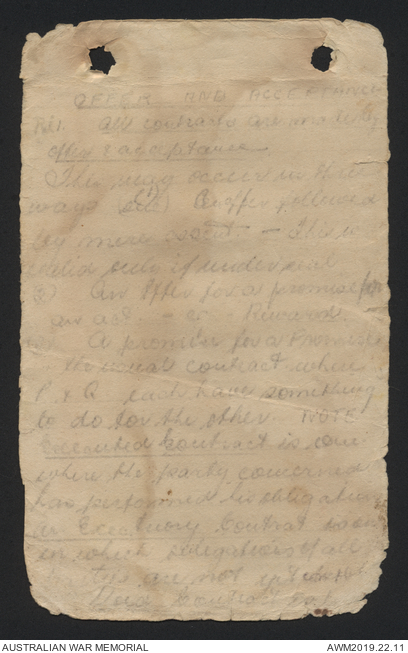 OFFER AND ACCEPTANCE
All contracts are made by
offer & acceptance
This may occur in three
ways (1) An offer followed
by mere assent - This is
valid only if under seal
(2) An offer for a promise for
an act - Rewards
A promise for a Promise
- the usual contract where
P & Q each have something
to do for the other NOTE
Executed Contract is one
where the party concerned
has performed his obligation
Executory Contract is one
in which obligations of all
are not yet
Contract
AUSTRALIAN WAR MEMORIAL
AWM2019.22.11